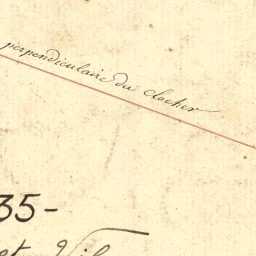 perpendiculaire du clocher
35-
et